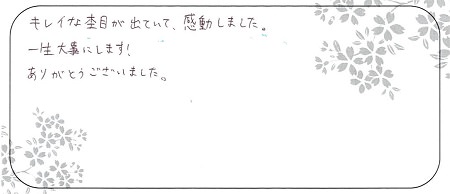 キレイな杢目が出ていて、感動しました。
一生大事にします!
ありがとうございました。